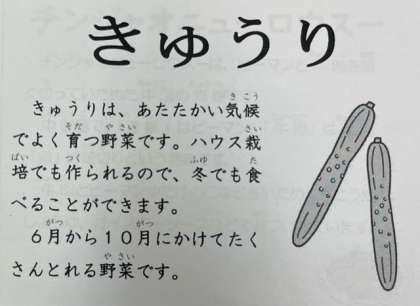 きゅうり
きゅうりは、あたたかい気候
でよく育つ野菜です。ハウス栽
培でも作られるので、冬でも食
べることができます。
6月から10月にかけてたく
さんとれる野菜です。